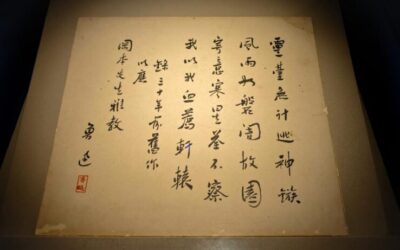 靈臺無計逃神鏃
風雨如磐闇故園
寄意寒星荃不察
我以我血薦軒轅
録三十年前舊作
以應
岡本先生雅教
魯迅